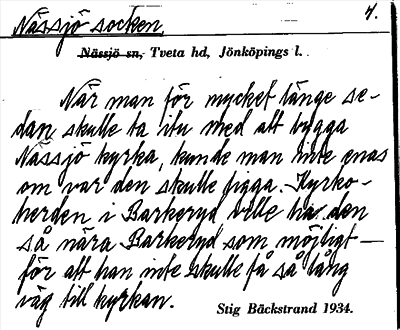 Nässjö socken. 4.
Nässjö sn, Tveta hd, Jönköpings l.
När man för mycket länge se-
dan skulle ta itu med att bygga
Nässjö kyrka, kunde man inte enas
om var den skulle ligga. Kyrko-
herden i Barkeryd ville ha den
så nära Barkeryd som möjligt —
för att han inte skulle få så lång
väg till kyrkan.
Stig Bäckstrand 1934.